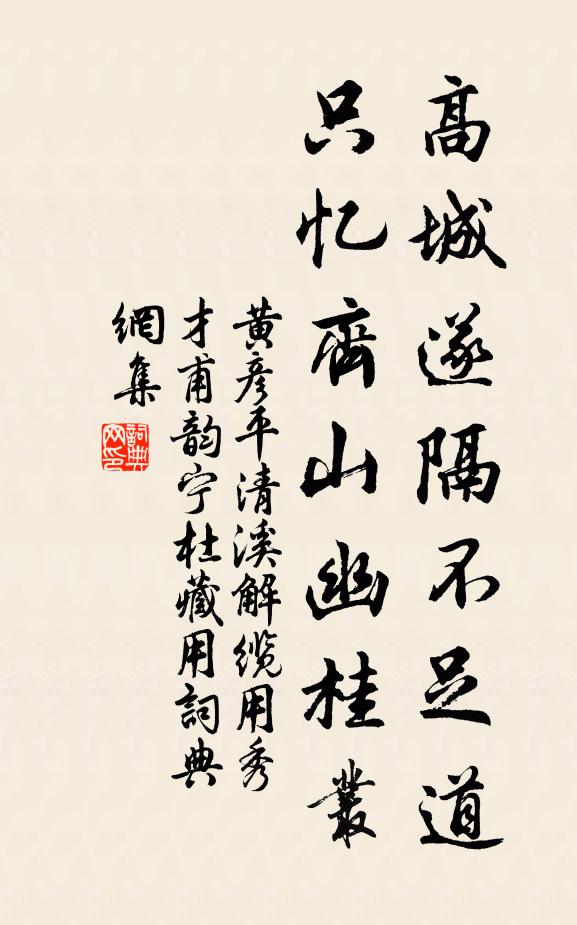 高城遂隔不足道
只忆齊山幽桂叢
黄彦平清溪解缆用秀
才甫韵宁杜藏用詞典
網集
詞典網印